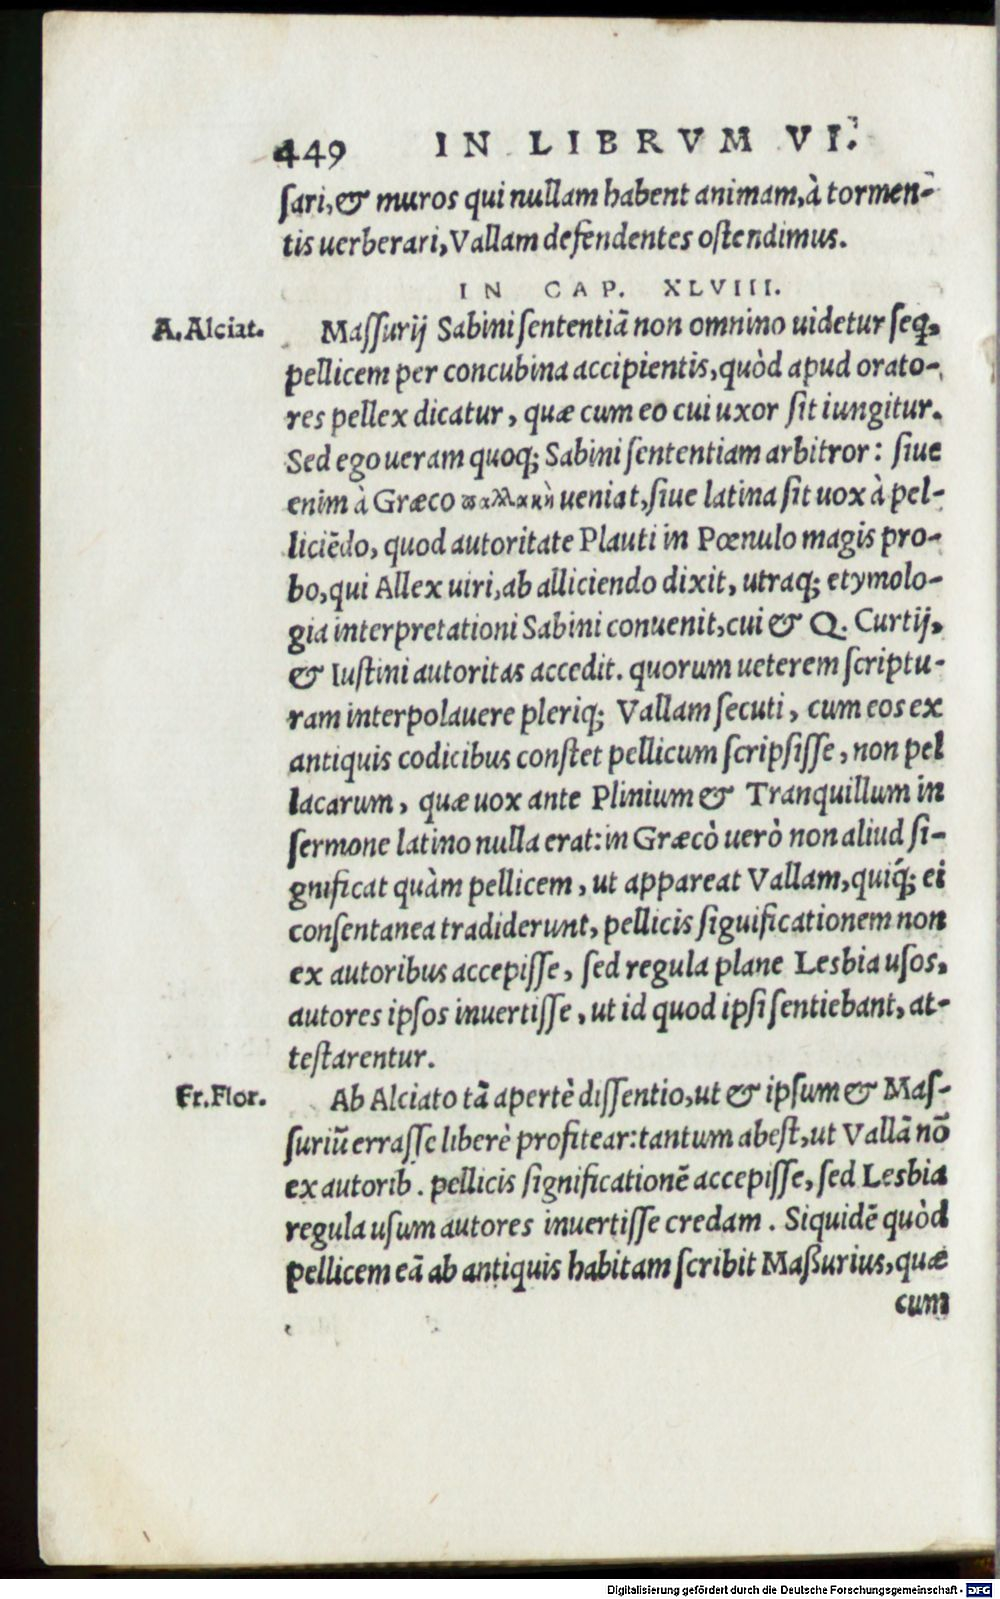 449 IN LIBRVM VI.
sari, & muros qui nullam habent animam, à tormen-
tis uerberari, Vallam defendentes ostendimus.
IN CAP. XLVIII.
A. Alciat. Massurij Sabini sententiã non omnino uidetur seq.
pellicem per concubina accipientis, quòd apud orato-
res pellex dicatur, quæ cum eo cui uxor sit iungitur.
Sed ego ueram quoq; Sabini sententiam arbitror: siue
enim à Græco παλλακὴ ueniat, siue latina sit uox à pel-
liciẽdo, quod autoritate Plauti in Pœnulo magis pro-
bo, qui Allex uiri, ab alliciendo dixit, utraq; etymolo-
gia interpretationi Sabini conuenit, cui & Q. Curtij,
& Iustini autoritas accedit. quorum ueterem scriptu-
ram interpolauere pleriq; Vallam secuti, cum eos ex
antiquis codicibus constet pellicum scripsisse, non pel
lacarum, quæ uox ante Plinium & Tranquillum in
sermone latino nulla erat: in Græcò uerò non aliud si-
gnificat quàm pellicem, ut appareat Vallam, quiq́; ei
consentanea tradiderunt, pellicis siguificationem non
ex autoribus accepisse, sed regula plane Lesbia usos,
autores ipsos inuertisse, ut id quod ipsi sentiebant, at-
testarentur.
Fr. Flor. Ab Alciato tã apertè dissentio, ut & ipsum & Mas-
suriũ errasse liberè profitear: tantum abest, ut Vallã nõ
ex autorib. pellicis significationẽ accepisse, sed Lesbia
regula usum autores inuertisse credam. Siquidẽ quòd
pellicem eã ab antiquis habitam scribit Maßurius, quæ
cum
Digitalisierung gefördert durch die Deutsche Forschungsgemeinschaft - DFG